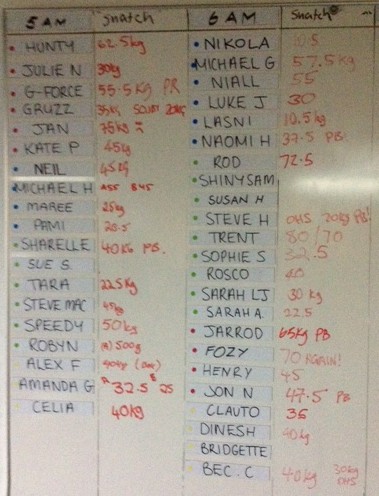 5 AM snatch
HUNTY 62.5kg
JULIE N 30kg
G-FORCE 55.5kg PR
GRUZZ 35kg
JAN
KATE P 45kg
NEIL 45kg
MICHAEL H
MAREE 25kg
PAMI
SHARELLE 40kg
SUE S.
TARA 22.5kg
STEVE MAC
SPEEDY 50kg
ROBYN 500g
ALEX F
AMANDA G 32.5
CELIA 40kg
6 AM Snatch
NIKOLA 10.5
MICHAEL G 57.5kg
NIALL 55
LUKE J 30
LASNI 10.5kg
NAOMI H 37.5 PB!
ROD 72.5
SHINYSAM
SUSAN H
STEVE H OHS 20kg PB!
TRENT 80/70
SOPHIE S 32.5
ROSCO 40
SARAH LJ 30 kg
SARAH A. 22.5
JARROD 65kg PB
FOZY 70 AGAIN!
HENRY 45
JON N 47.5 PB
CLAUTO 35
DINESH 40kg
BRIDGETTE
BEC. C 40kg 30kg OHS